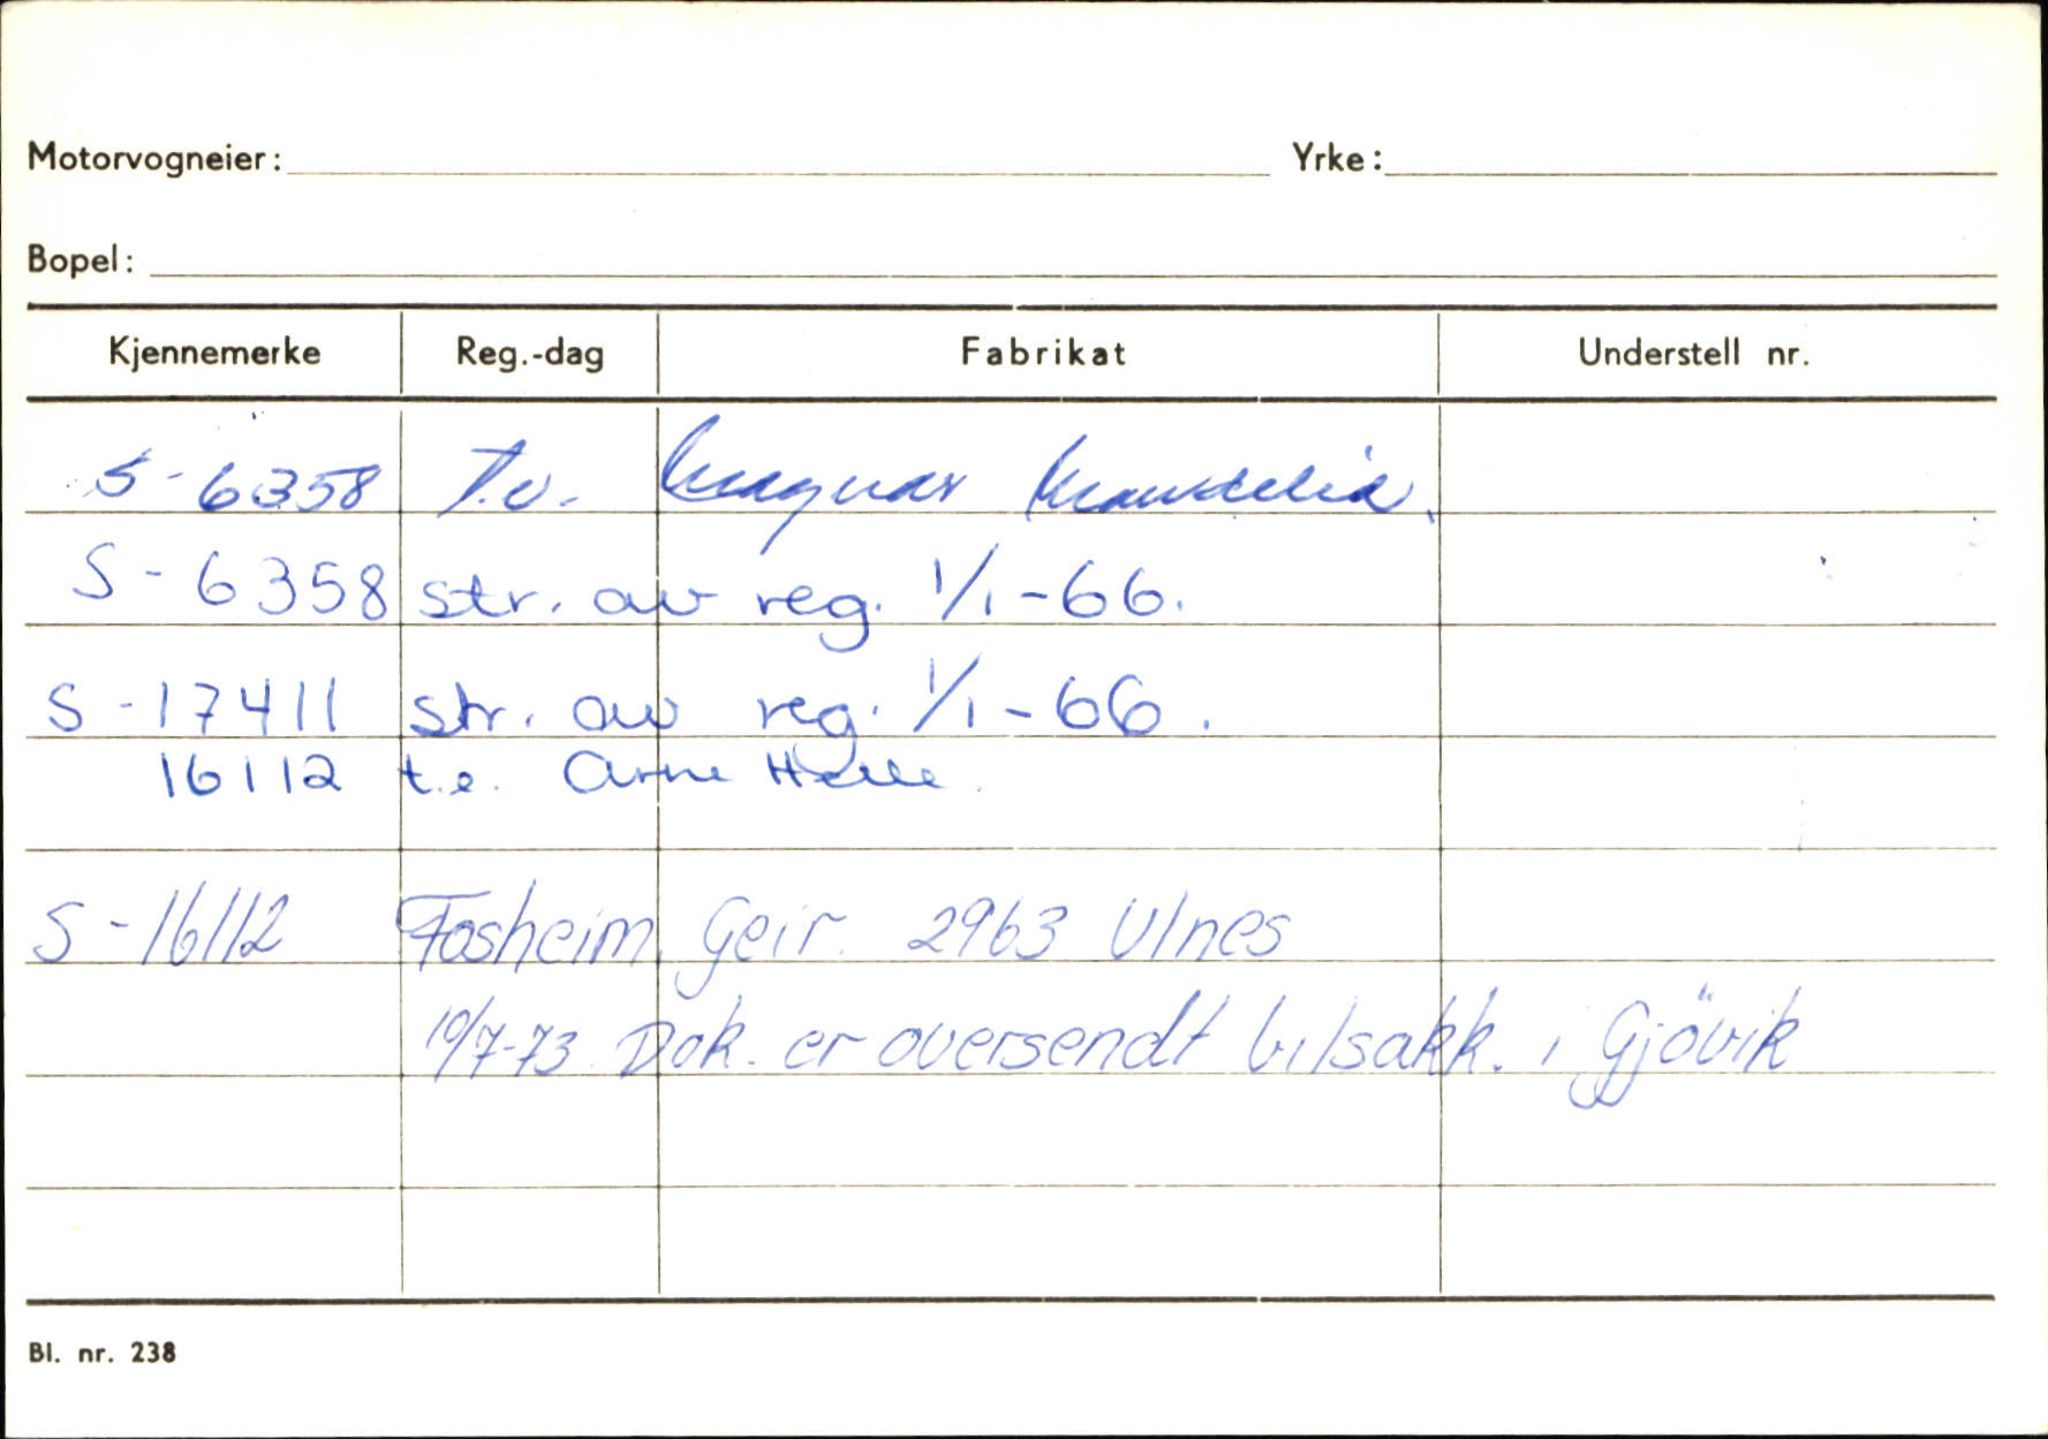 Motorvogneier: Yrke:
Bopel:
Kjennemerke Reg.-dag Fabrikat Understell nr.
S-6358 Magnar
S-6358 str. av reg. 1/1-66.
S-17411 str. av reg. 1/1-66.
16112 t.e. Arne Helle.
S-16112 Fosheim, Geir. 2963 Ulnes
10/7-73 Dok. er oversendt bilsakk. i Gjövik
Bl. nr. 238